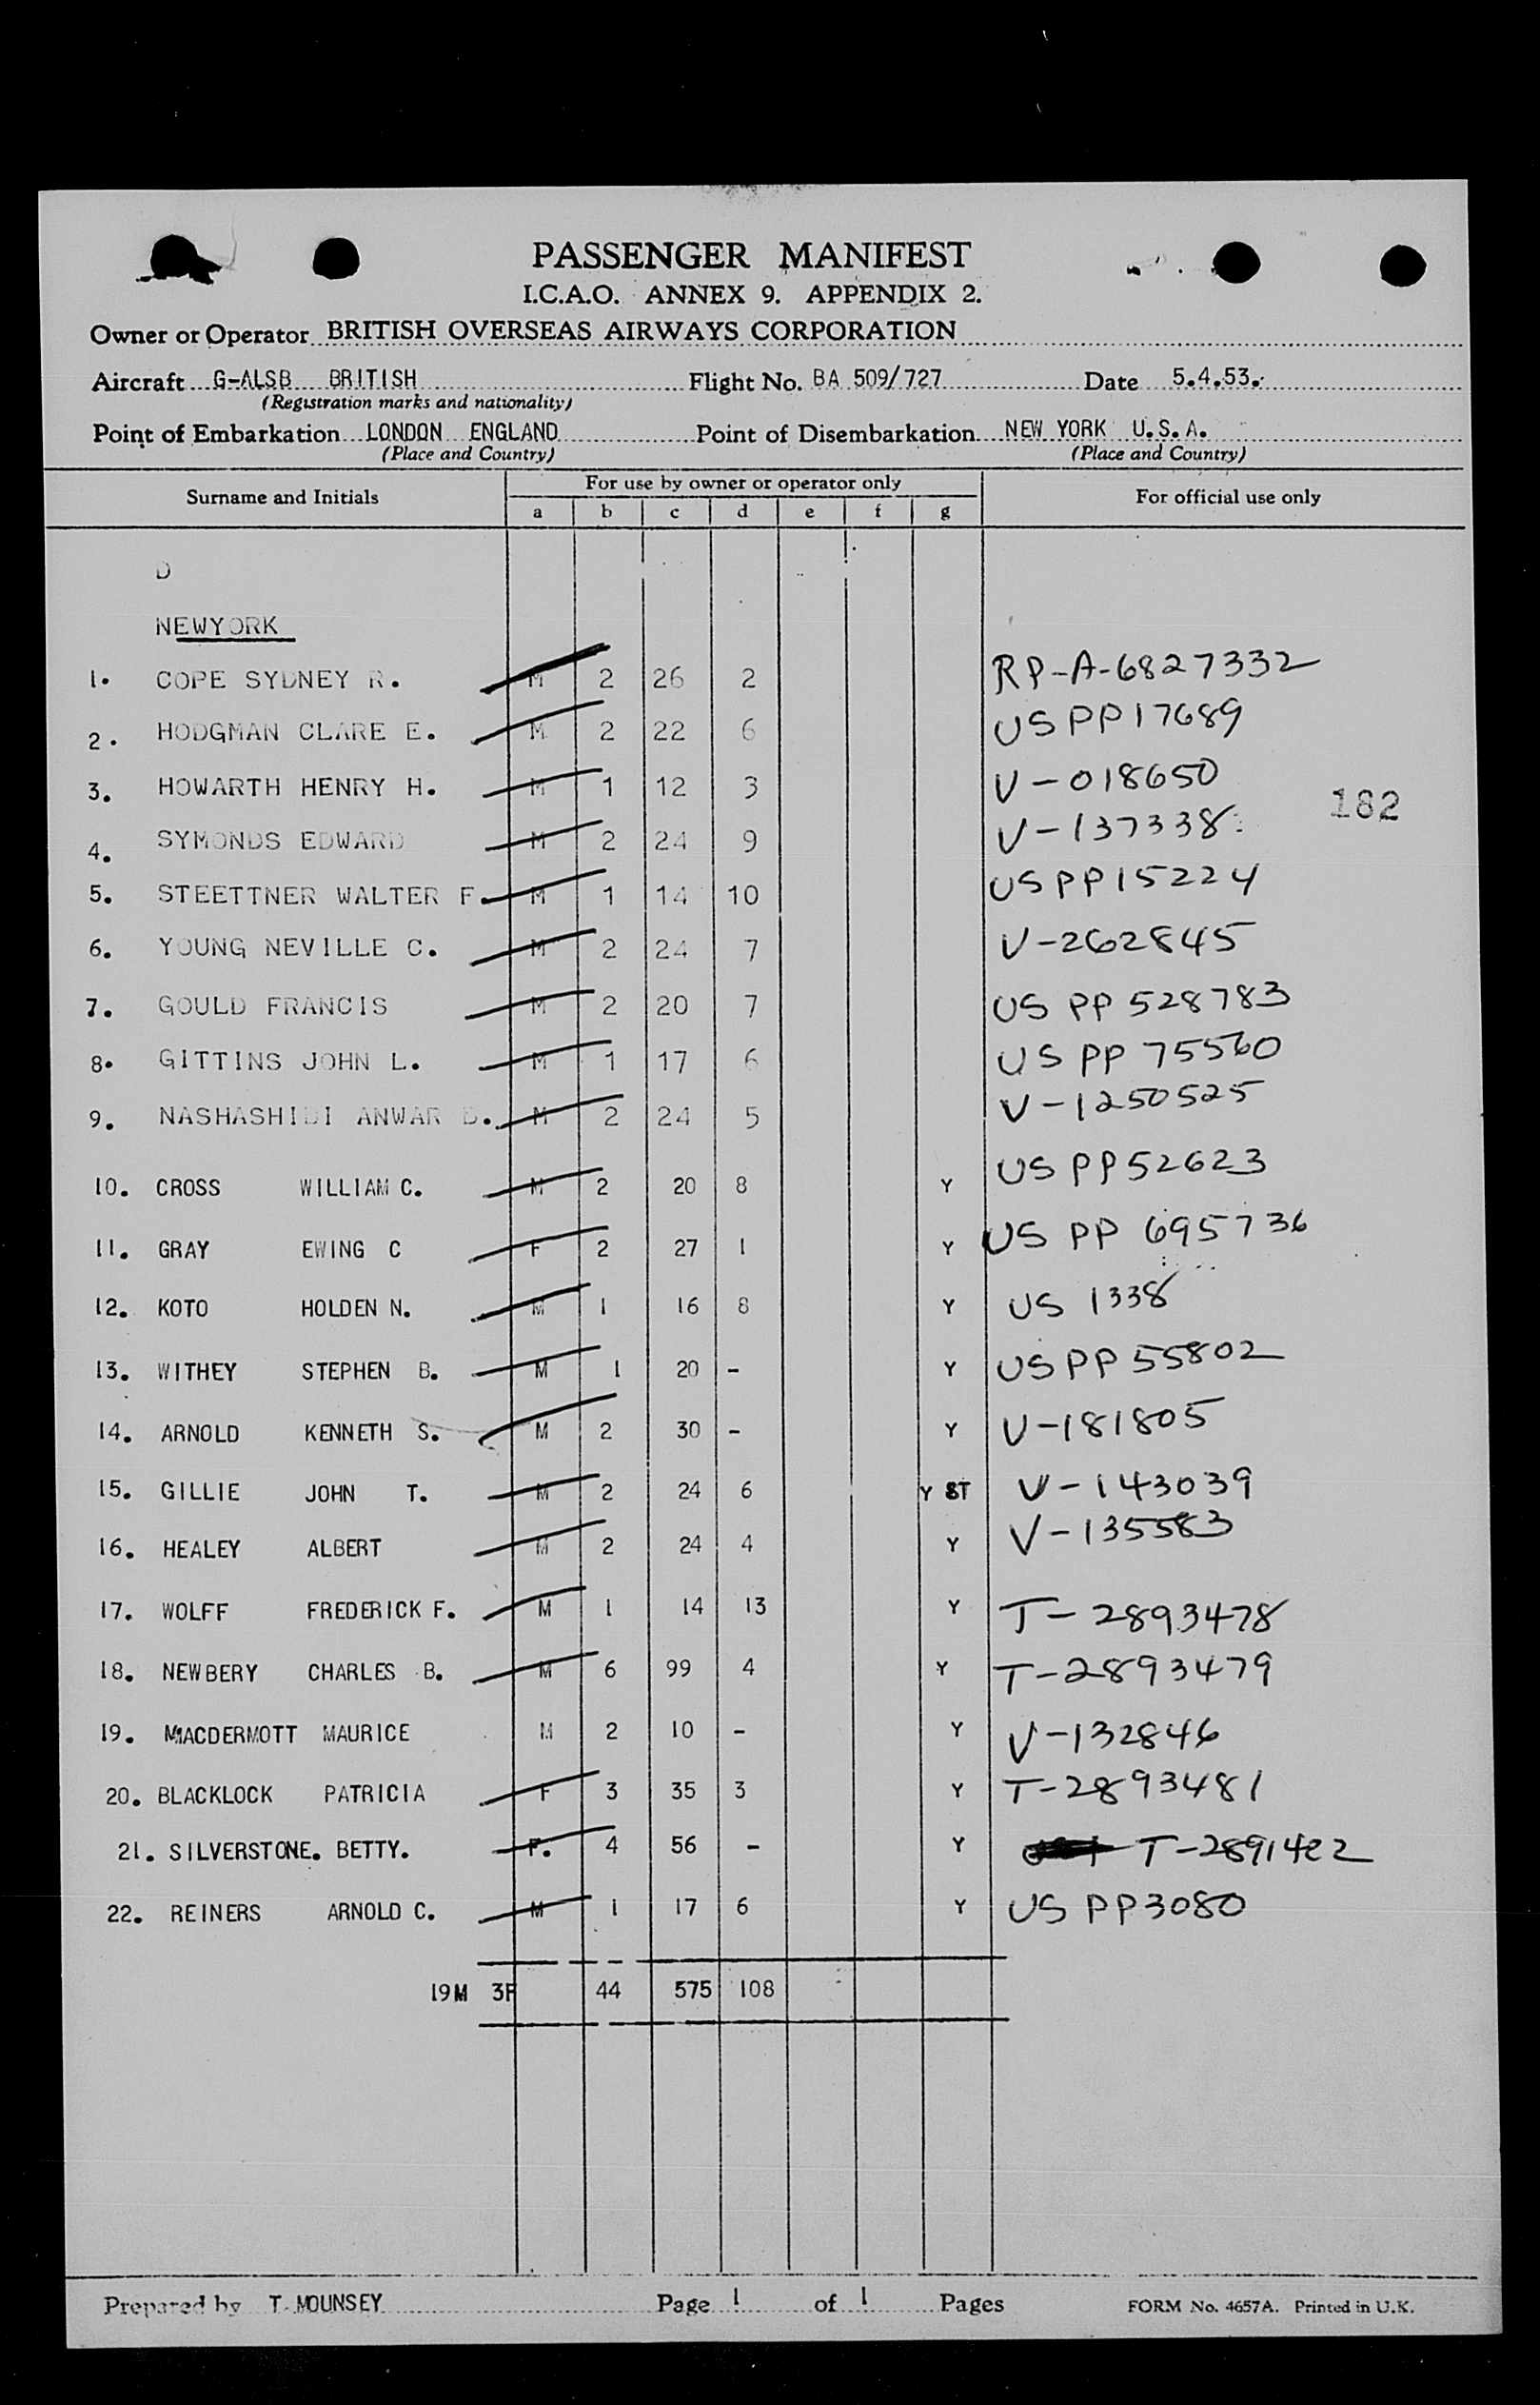 PASSENGER MANIFEST
I.C.A.O. ANNEX 9. APPENDIX 2.
Owner or Operator BRITISH OVERSEAS AIRWAYS CORPORATION
Aircraft G-ALSB BRITISH Flight No. BA 509/727 Date 5.4.53.
(Registration marks and nationality)
Point of Embarkation LONDON ENGLAND Point of Disembarkation NEW YORK U.S.A.
(Place and Country) (Place and Country)
Surname and Initials For use by owner or operator only For official use only
a b c d e f g
D
NEWYORK
1. COPE SYDNEY R. M 2 26 2 RP-A-6827332
2. HODGMAN CLARE E. M 2 22 6 US PP17689
3. HOWARTH HENRY H. M 1 12 3 V-018650
182
4. SYMONDS EDWARD M 2 24 9 V-137338
5. STEETTNER WALTER F. M 1 14 10 US PP15224
6. YOUNG NEVILLE C. M 2 24 7 V-262845
7. GOULD FRANCIS M 2 20 7 US PP 528783
8. GITTINS JOHN L. M 1 17 6 US PP 75560
9. NASHASHIBI ANWAR D. M 2 24 5 V-1250525
10. CROSS WILLIAM C. M 2 20 8 Y US PP52623
11. GRAY EWING C F 2 27 1 Y US PP 695736
12. KOTO HOLDEN N. M 1 16 8 Y US 1338
13. WITHEY STEPHEN B. M 1 20 - Y US PP 55802
14. ARNOLD KENNETH S. M 2 30 - Y V-181805
15. GILLIE JOHN T. M 2 24 6 Y ST V-143039
16. HEALEY ALBERT M 2 24 4 Y V-135583
17. WOLFF FREDERICK F. M 1 14 13 Y T-2893478
18. NEWBERY CHARLES B. M 6 99 4 Y T-2893479
19. MACDERMOTT MAURICE M 2 10 - Y V-132846
20. BLACKLOCK PATRICIA F 3 35 3 Y T-2893481
21. SILVERSTONE. BETTY. F. 4 56 - Y T-2891482
22. REINERS ARNOLD C. M 1 17 6 Y US PP3080
19M 3F 44 575 108
Prepared by T. MOUNSEY Page 1 of 1 Pages FORM No. 4657A. Printed in U.K.